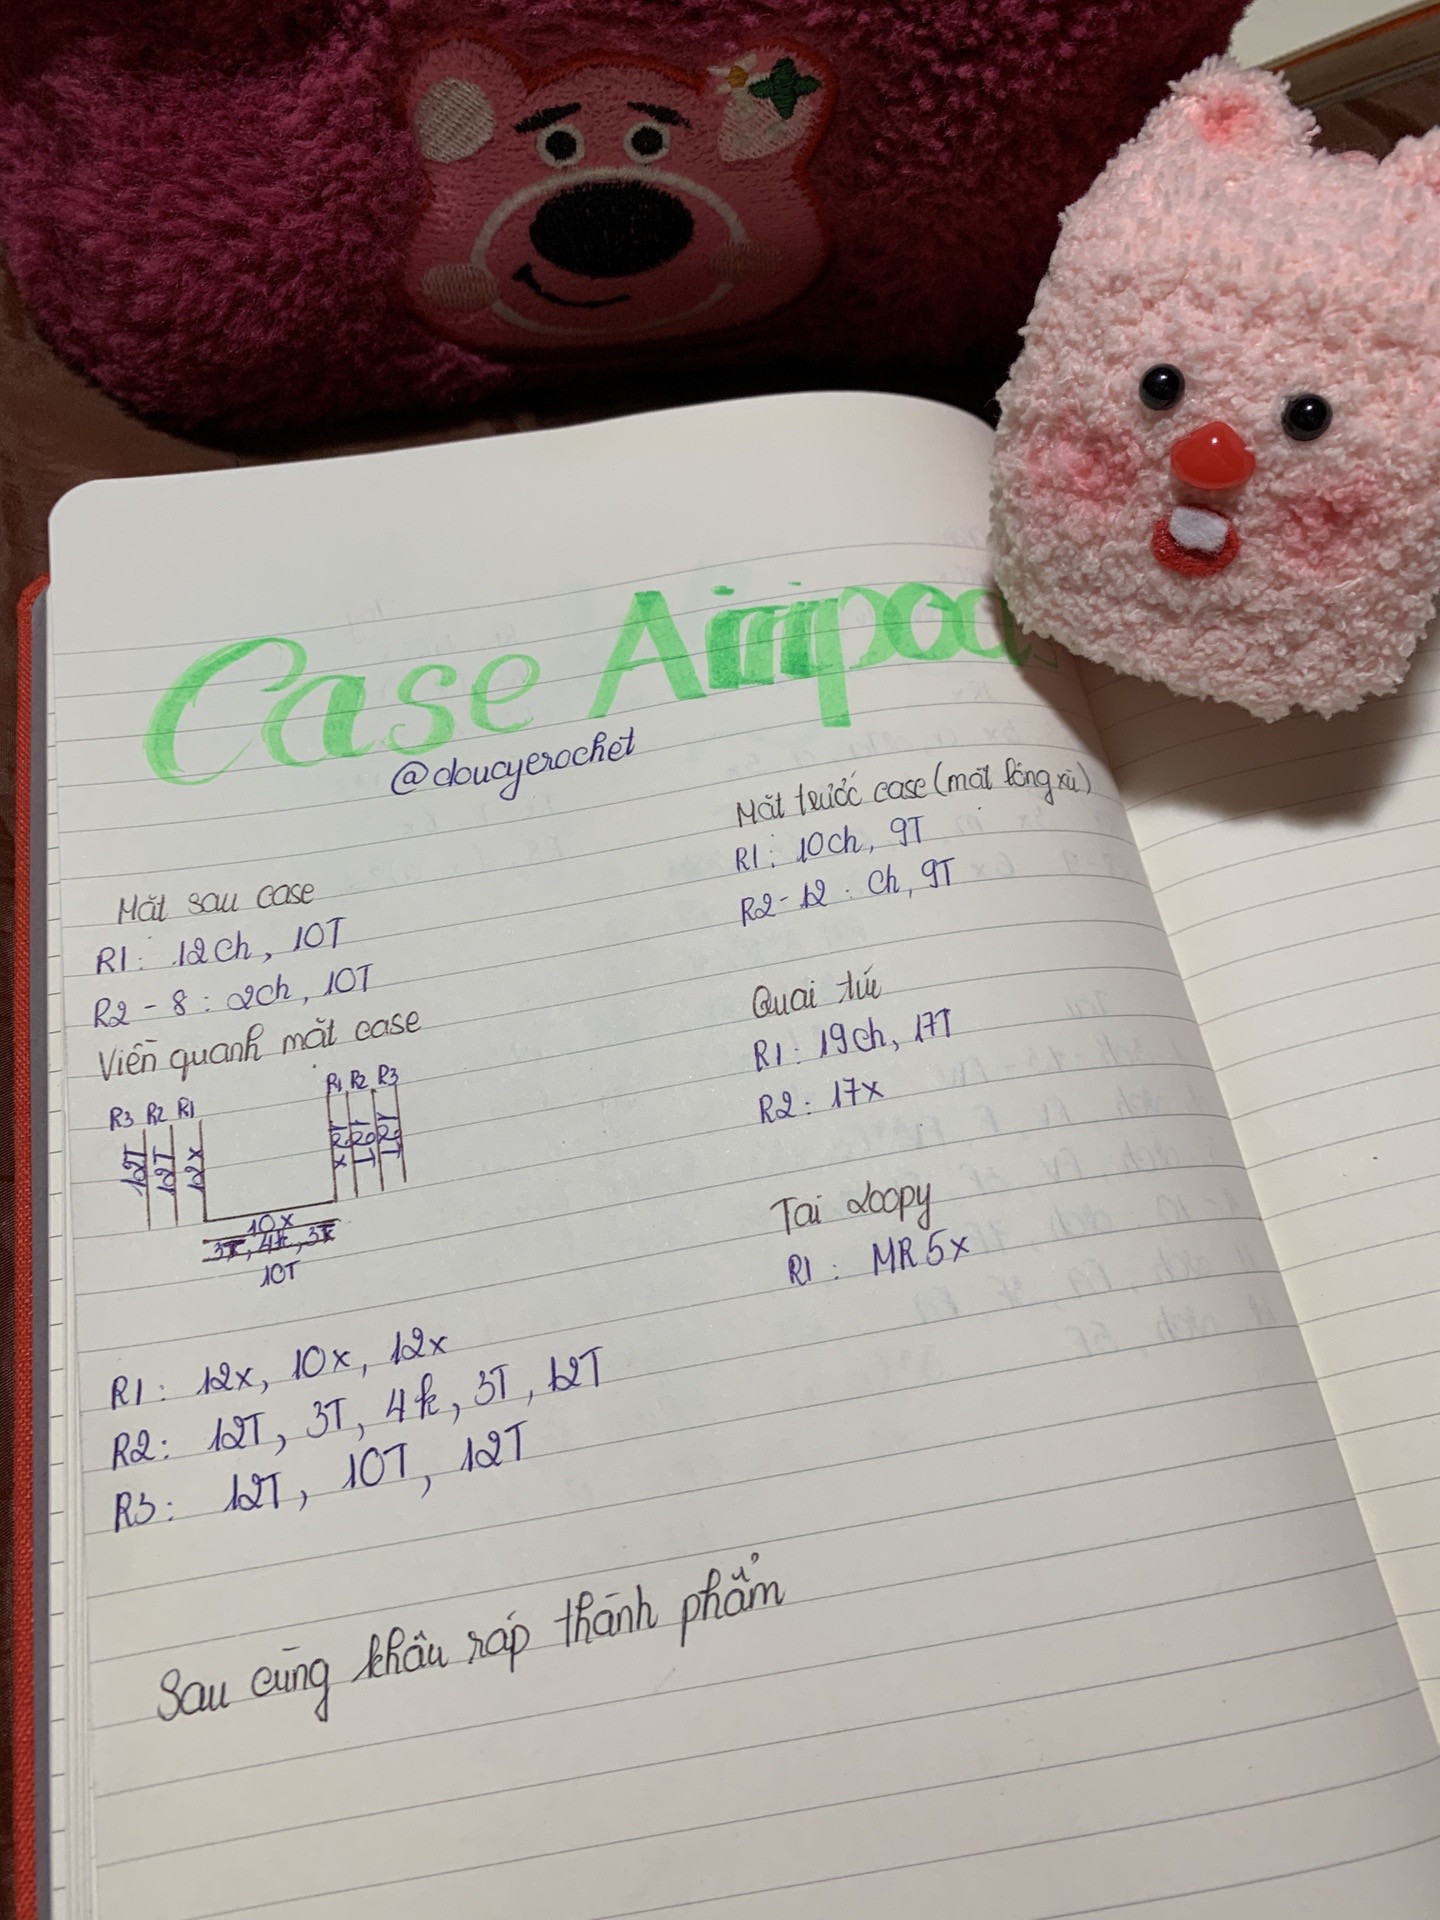 Case Airpods
@doucycrochet
Mặt sau case
R1: 12ch, 10T
R2-8: 2ch, 10T
Viền quanh mặt case
R3 R2 R1
R1 R2 R3
12T 12T 12x
12x 12T 12T
10x
3T, 4k, 3T
10T
R1: 12x, 10x, 12x
R2: 12T, 3T, 4k, 3T, 12T
R3: 12T, 10T, 12T
Mặt trước case (mặt lông xù)
R1: 10ch, 9T
R2-12: ch, 9T
Quai túi
R1: 19ch, 17T
R2: 17x
Tai Loopy
R1: MR 5x
Sau cùng khâu ráp thành phẩm